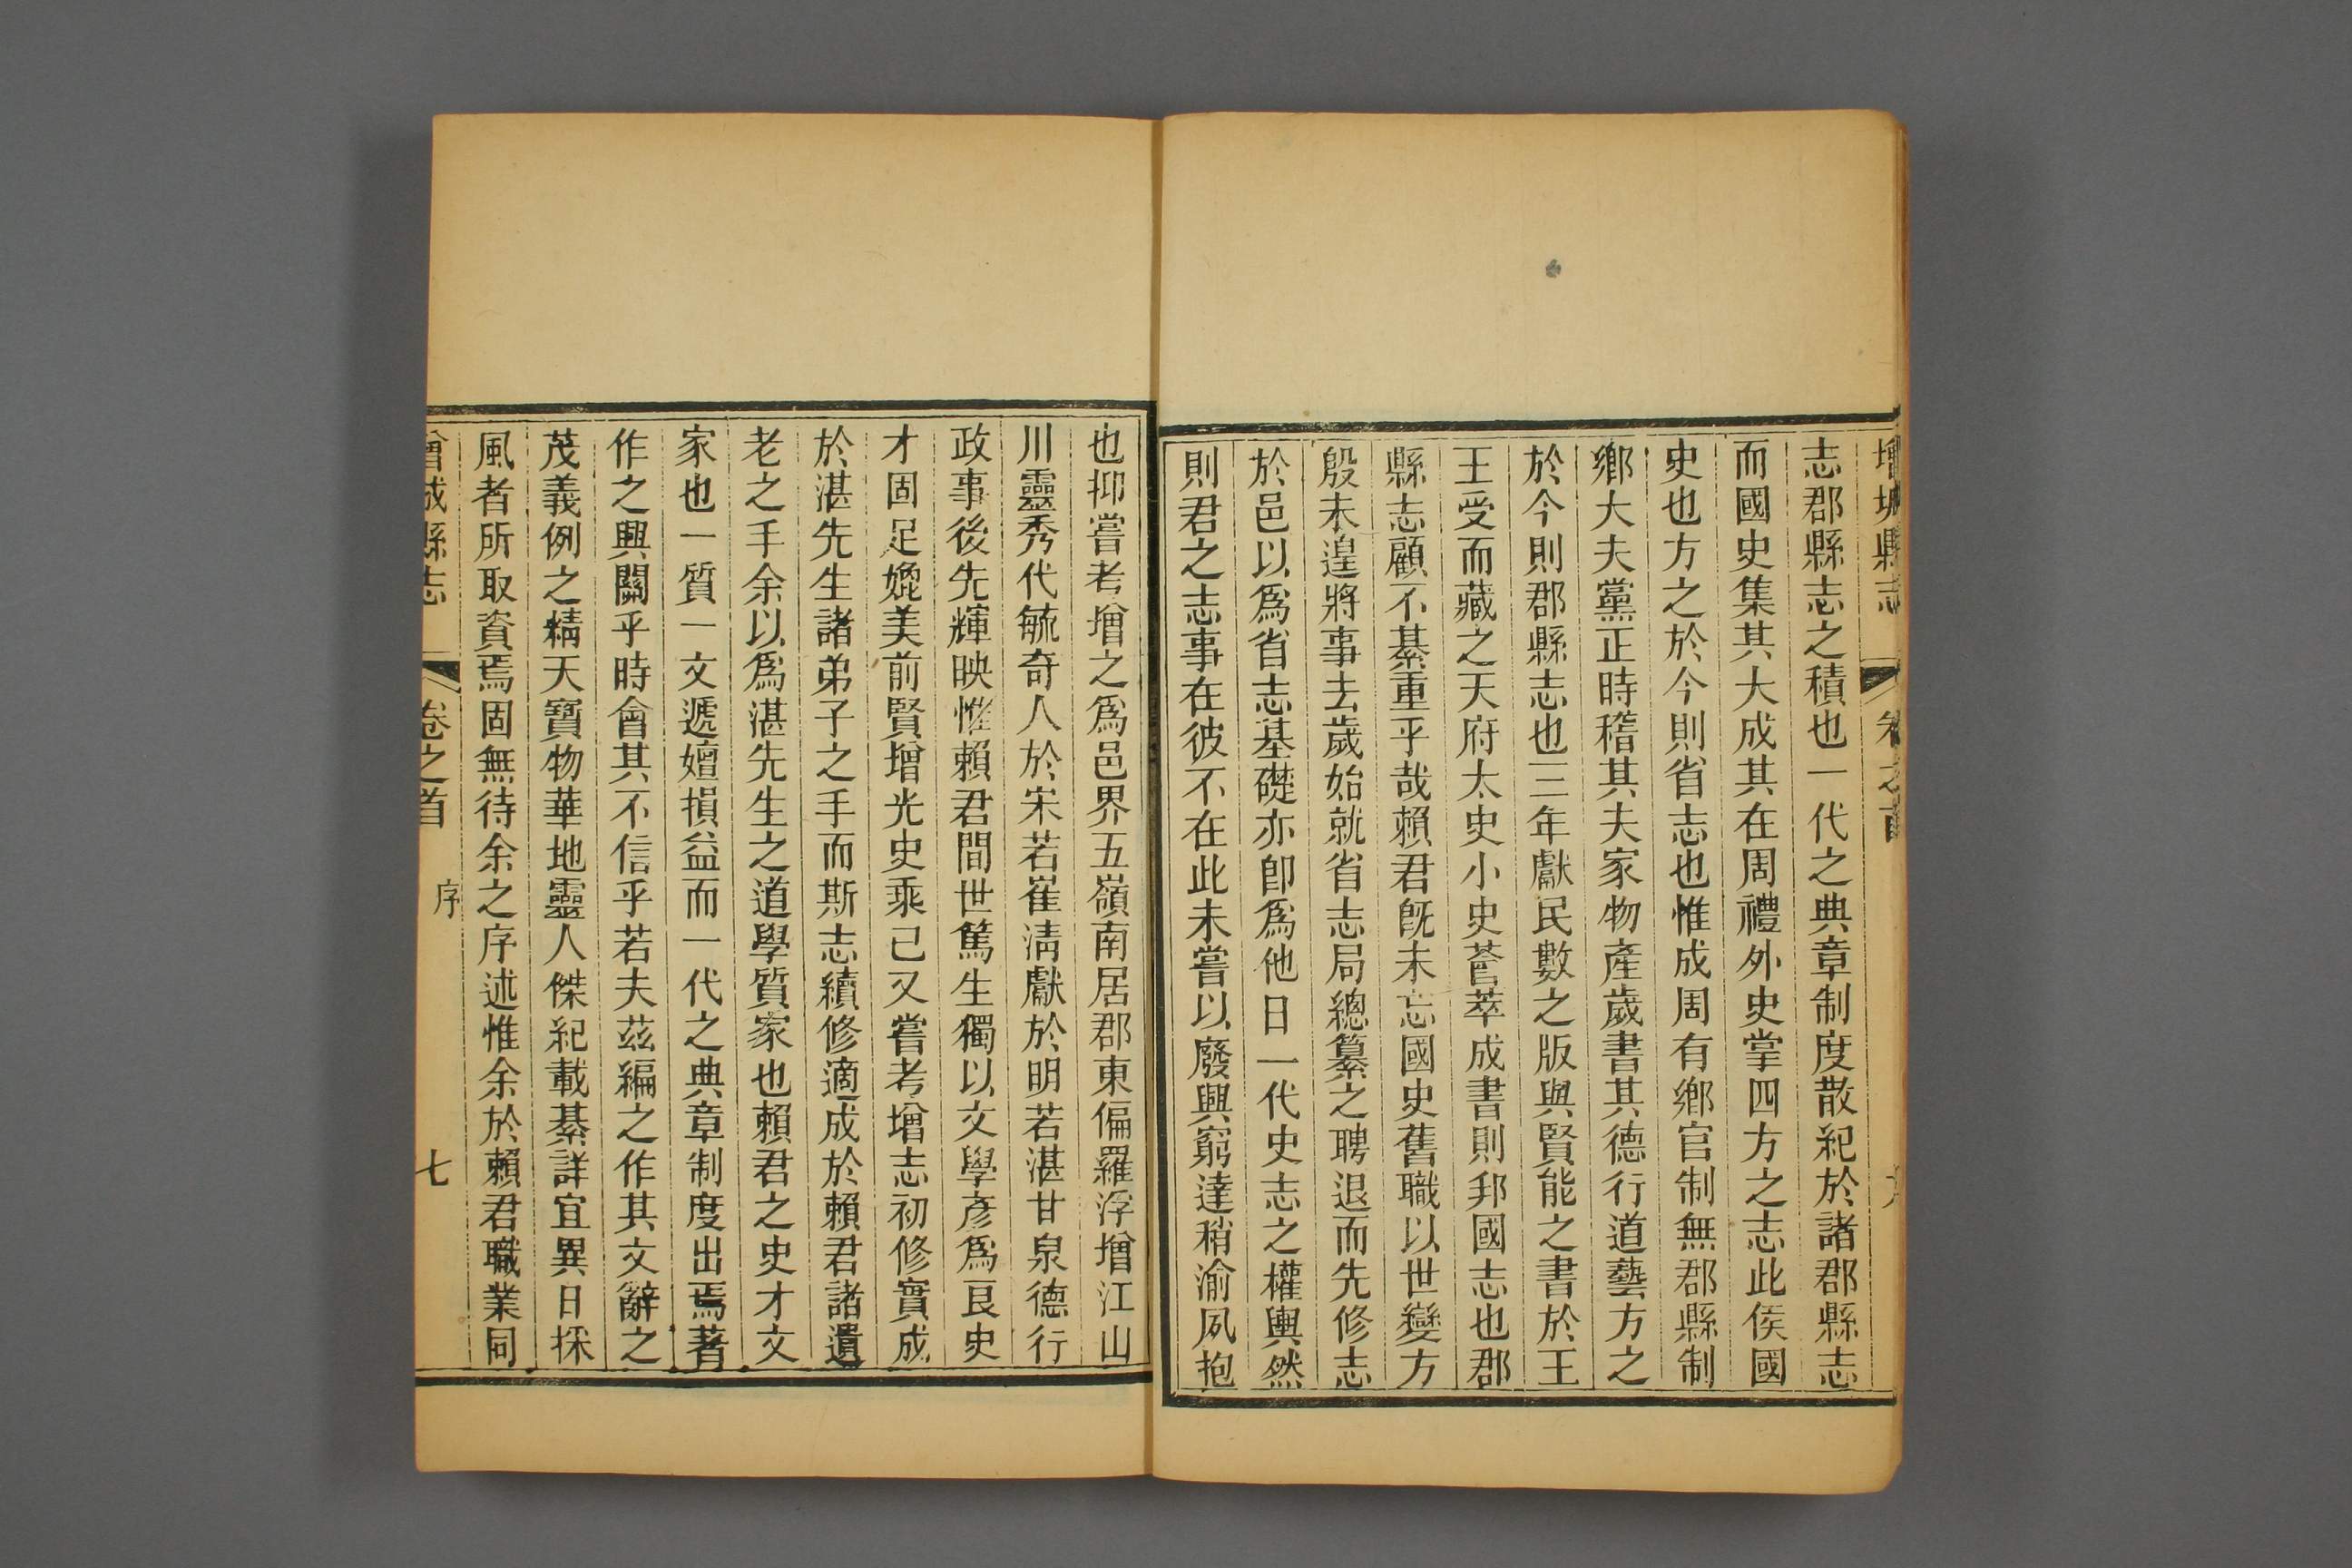 增城縣志 卷之首
志郡縣志之積也一代之典章制度散紀於諸郡縣志
而國史集其大成其在周禮外史掌四方之志此侯國
史也方之於今則省志也惟成周有鄉官制無郡縣制
鄉大夫黨正時稽其夫家物產歲書其德行道藝方之
於今則郡縣志也三年獻民數之版與賢能之書於王
王受而藏之天府太史小史薈萃成書則邦國志也郡
縣志顧不綦重乎哉賴君旣未忘國史舊職以世變方
殷未遑將事去歲始就省志局總纂之聘退而先修志
於邑以爲省志基礎亦卽爲他日一代史志之權輿然
則君之志事在彼不在此未嘗以廢興窮達稍渝夙抱
也抑嘗考增之爲邑界五嶺南居郡東偏羅浮增江山
川靈秀代毓奇人於宋若崔淸獻於明若湛甘泉德行
政事後先輝映惟賴君間世篤生獨以文學彥爲良史
才固足媲美前賢增光史乘已又嘗考增志初修實成
於湛先生諸弟子之手而斯志續修適成於賴君諸遺
老之手余以爲湛先生之道學質家也賴君之史才文
家也一質一文遞嬗損益而一代之典章制度出焉著
作之興關乎時會其不信乎若夫茲編之作其文辭之
茂義例之精天寶物華地靈人傑紀載綦詳宜異日採
風者所取資焉固無待余之序述惟余於賴君職業同
增城縣志 卷之首 序 七